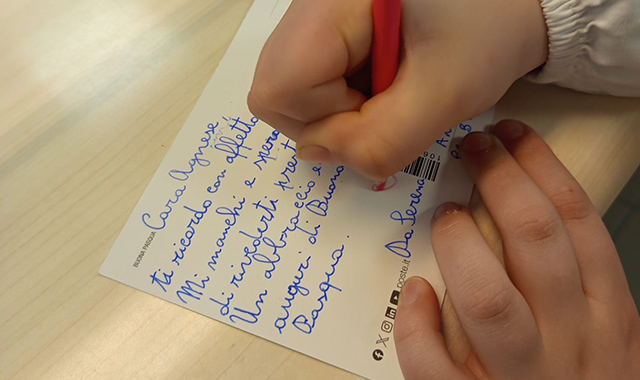 BUONA PASQUA
Cara Agnese
ti ricordo con affetto
Mi manchi e spero
di rivederti prest
Un abbraccio e
auguri di Buona
Pasqua.
Da Serena
poste.it